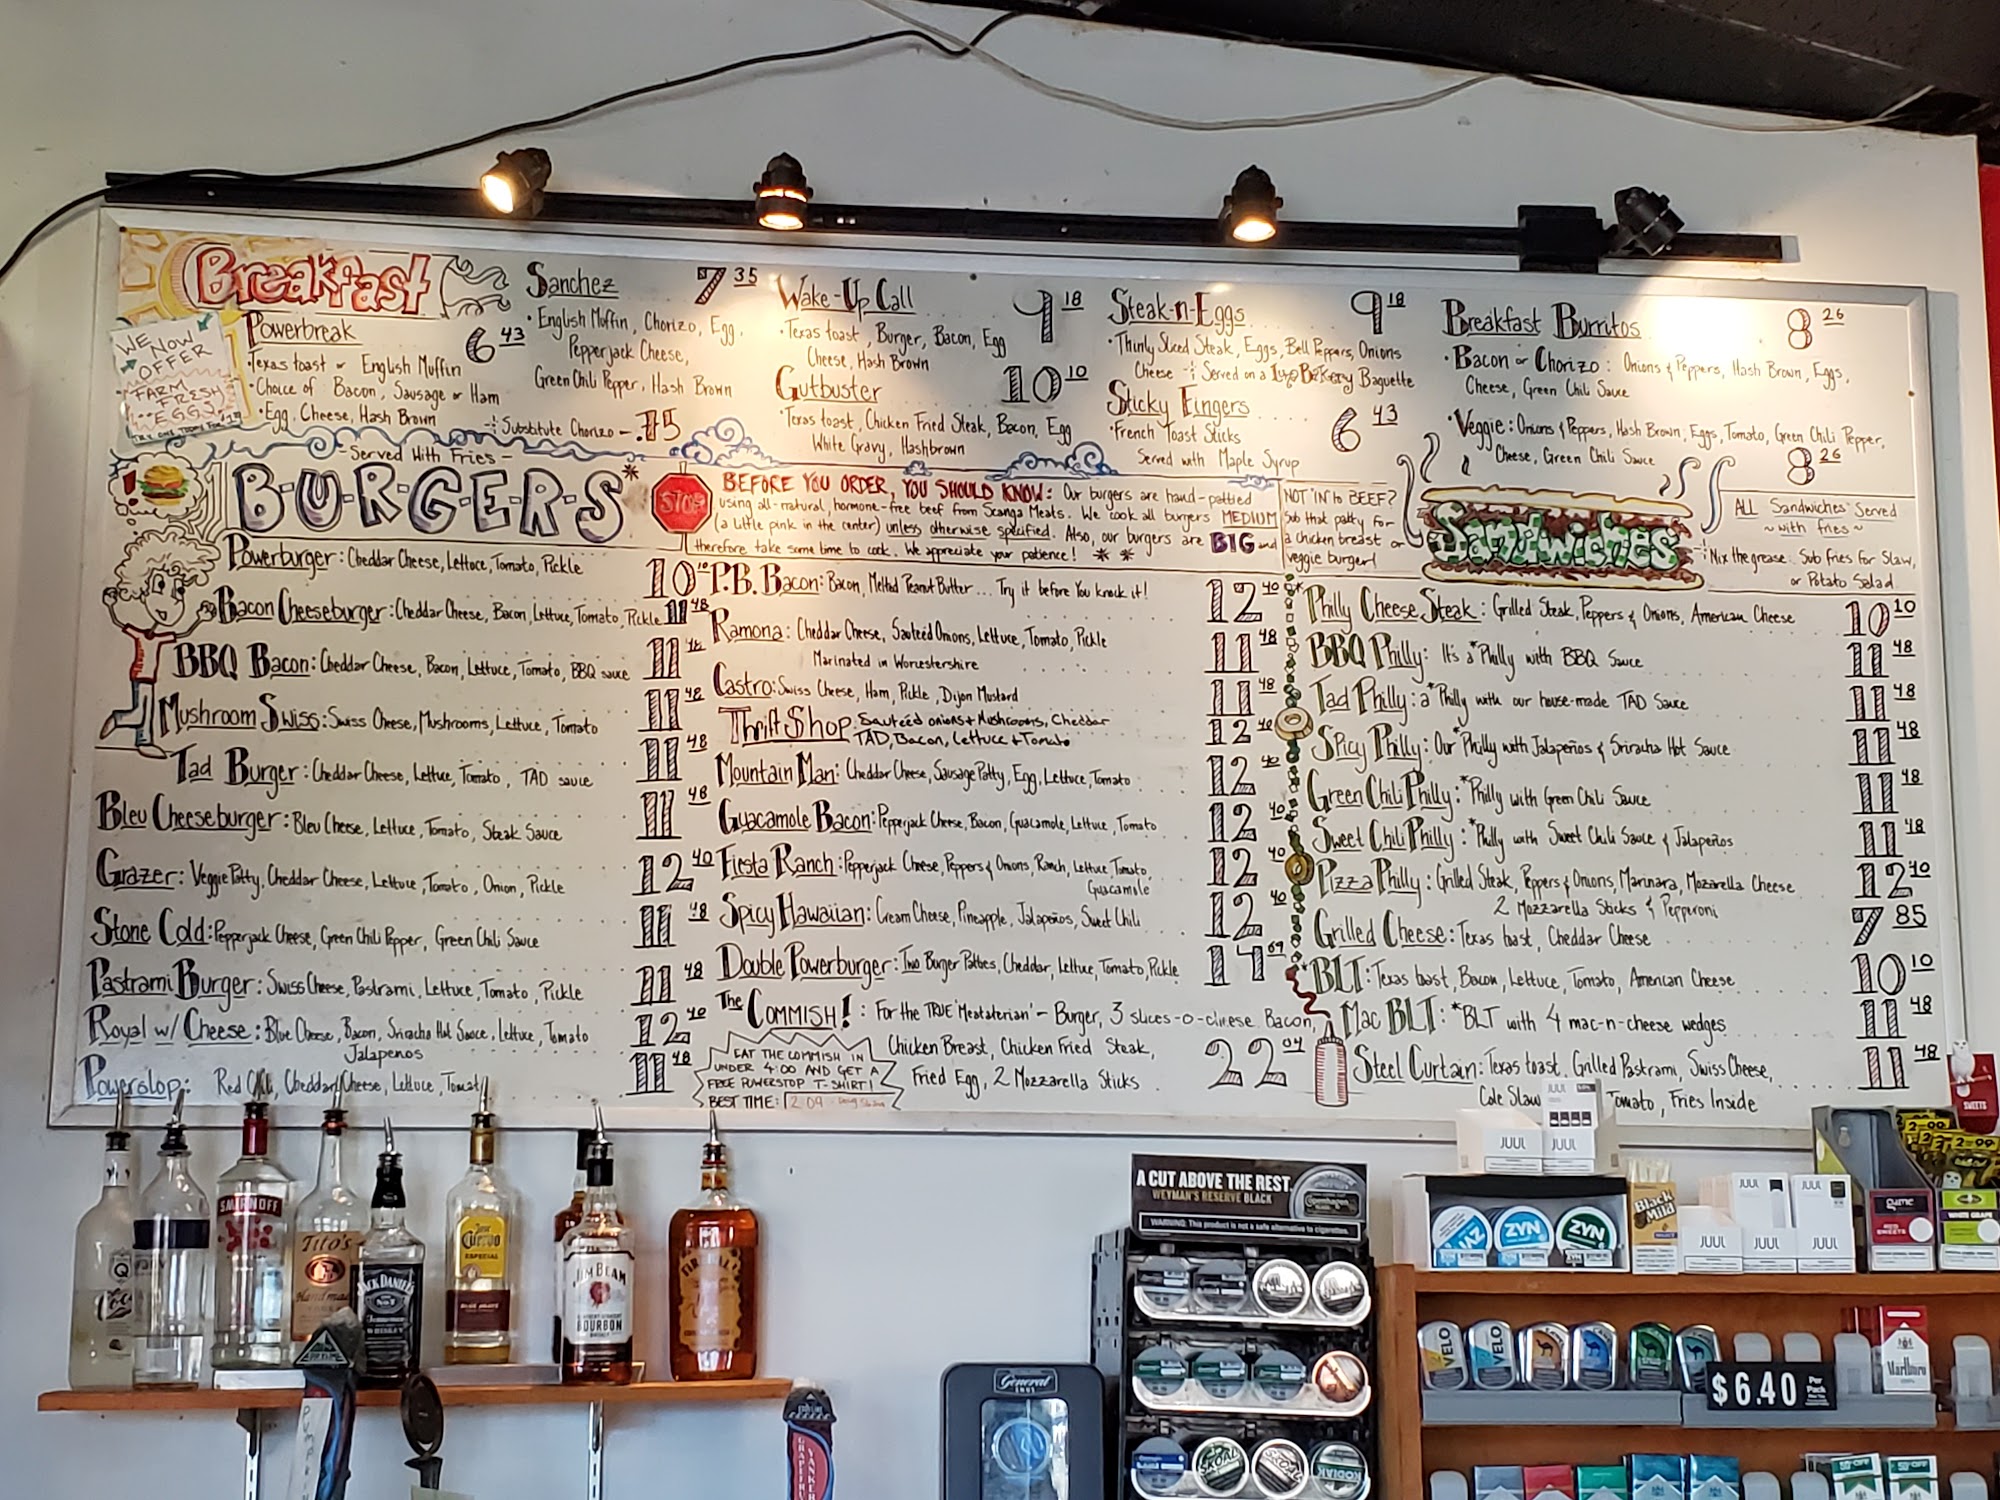 Breakfast
WE NOW OFFER
FARM FRESH EGGS
Powerbreak 6 43
·Texas toast or English Muffin
·Choice of Bacon, Sausage or Ham
·Egg, Cheese, Hash Brown
Sanchez 7 35
·English Muffin, Chorizo, Egg,
Pepperjack Cheese,
Green Chili Pepper, Hash Brown
Substitute Chorizo - .75
Wake-Up Call 9 18
·Texas toast, Burger, Bacon, Egg
Cheese, Hash Brown
Gutbuster 10 10
·Texas toast, Chicken Fried Steak, Bacon, Egg
White Gravy, Hashbrown
Steak-n-Eggs 9 18
·Thinly Sliced Steak, Eggs, Bell Peppers, Onions
Cheese - Served on a Baguette
Sticky Fingers 6 43
·French Toast Sticks
Served with Maple Syrup
Breakfast Burritos 8 26
·Bacon or Chorizo: Onions & Peppers, Hash Brown, Eggs,
Cheese, Green Chili Sauce
·Veggie: Onions & Peppers, Hash Brown, Eggs, Tomato, Green Chili Pepper,
Cheese, Green Chili Sauce 8 26
-Served With Fries-
B·U·R·G·E·R·S*
STOP
BEFORE YOU ORDER, YOU SHOULD KNOW: Our burgers are hand-pattied
using all-natural, hormone-free beef from Scanga Meats. We cook all burgers MEDIUM
(a little pink in the center) unless otherwise specified. Also, our burgers are BIG and
therefore take some time to cook. We appreciate your patience! * *
NOT IN to BEEF?
Sub that patty for
a chicken breast or
veggie burger!
Powerburger: Cheddar Cheese, Lettuce, Tomato, Pickle 10 10
Bacon Cheeseburger: Cheddar Cheese, Bacon, Lettuce, Tomato, Pickle 11 48
BBQ Bacon: Cheddar Cheese, Bacon, Lettuce, Tomato, BBQ sauce 11 48
Mushroom Swiss: Swiss Cheese, Mushrooms, Lettuce, Tomato 11 48
Tad Burger: Cheddar Cheese, Lettuce, Tomato, TAD sauce 11 48
Bleu Cheeseburger: Bleu Cheese, Lettuce, Tomato, Steak Sauce 11 48
Grazer: Veggie Patty, Cheddar Cheese, Lettuce, Tomato, Onion, Pickle 12 40
Stone Cold: Pepperjack Cheese, Green Chili Pepper, Green Chili Sauce 11 48
Pastrami Burger: Swiss Cheese, Pastrami, Lettuce, Tomato, Pickle 11 48
Royal w/ Cheese: Blue Cheese, Bacon, Sriracha Hot Sauce, Lettuce, Tomato 12 40
Jalapenos
Powerslop: Red Chili, Cheddar Cheese, Lettuce, Tomato 11 48
P.B. Bacon: Bacon, Melted Peanut Butter... Try it before You knock it! 12 40
Ramona: Cheddar Cheese, Sauteéd Onions, Lettuce, Tomato, Pickle 11 48
Marinated in Worcestershire
Castro: Swiss Cheese, Ham, Pickle, Dijon Mustard 11 48
Thrift Shop Sauteéd onions + Mushrooms, Cheddar 12 40
TAD, Bacon, Lettuce + Tomato
Mountain Man: Cheddar Cheese, Sausage Patty, Egg, Lettuce, Tomato 12 40
Guacamole Bacon: Pepperjack Cheese, Bacon, Guacamole, Lettuce, Tomato 12 40
Fiesta Ranch: Pepperjack Cheese, Peppers & Onions, Ranch, Lettuce, Tomato, 12 40
Guacamole
Spicy Hawaiian: Cream Cheese, Pineapple, Jalapeños, Sweet Chili 12 40
Double Powerburger: Two Burger Patties, Cheddar, Lettuce, Tomato, Pickle 14 69
The COMMISH!: For the TRUE 'Meatatarian' - Burger, 3 slices-o-cheese Bacon,
Chicken Breast, Chicken Fried Steak,
Fried Egg, 2 Mozzarella Sticks 22 04
EAT THE COMMISH IN
UNDER 4:00 AND GET A
FREE POWERSTOP T-SHIRT!
BEST TIME: 2:09
Sandwiches
ALL Sandwiches Served
~with fries~
Nix the grease. Sub fries for Slaw,
or Potato Salad
*Philly Cheese Steak: Grilled Steak, Peppers & Onions, American Cheese 10 10
BBQ Philly: It's a *Philly with BBQ Sauce 11 48
Tad Philly: a *Philly with our house-made TAD Sauce 11 48
Spicy Philly: Our *Philly with Jalapeños & Sriracha Hot Sauce 11 48
Green Chili Philly: *Philly with Green Chili Sauce 11 48
Sweet Chili Philly: *Philly with Sweet Chili Sauce & Jalapeños 11 48
Pizza Philly: Grilled Steak, Peppers & Onions, Marinara, Mozarella Cheese 12 40
2 Mozzarella Sticks & Pepperoni
Grilled Cheese: Texas toast, Cheddar Cheese 7 85
*BLT: Texas toast, Bacon, Lettuce, Tomato, American Cheese 10 10
Mac BLT: *BLT with 4 mac-n-cheese wedges 11 48
Steel Curtain: Texas toast, Grilled Pastrami, Swiss Cheese, 11 48
Cole Slaw Tomato, Fries Inside
SMIRNOFF
Tito's
Handmade
JACK DANIEL'S
Jose Cuervo
ESPECIAL
JIM BEAM
BOURBON
FIREBALL
A CUT ABOVE THE REST.
WEYMAN'S RESERVE BLACK
WARNING: This product is not a safe alternative to cigarettes.
Copenhagen
General
SKOAL
SKOAL
KODIAK
JUUL
JUUL
JUUL
ZYN
ZYN
Black & Mild
JUUL
JUUL
JUUL
JUUL
JUUL
SWEETS
2 for 99¢
game
RED SWEETS
WHITE GRAPE
VELO
VELO
CAMEL
Marlboro
$6.40 Per Pack